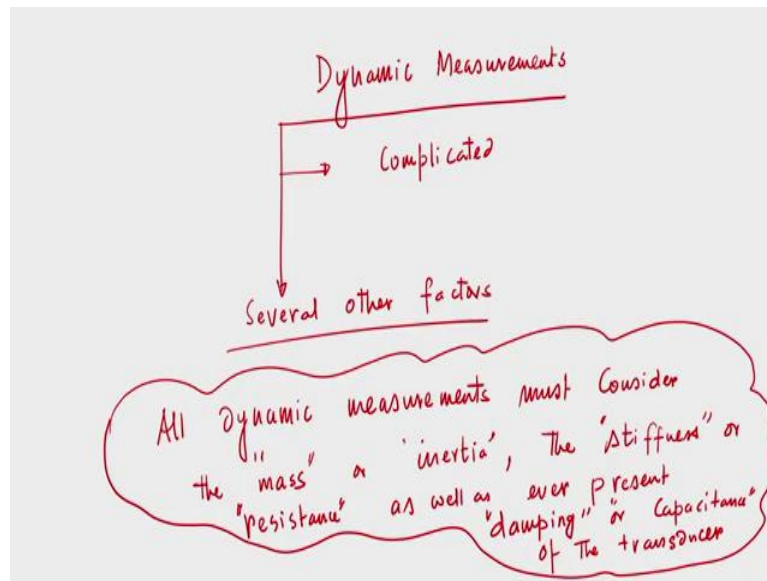 Dynamic Measurements
Complicated
Several other factors
All dynamic measurements must Consider
the "mass" or 'inertia', The "stiffness" or
"resistance" as well as ever present
"damping" or Capacitance"
of The transducer